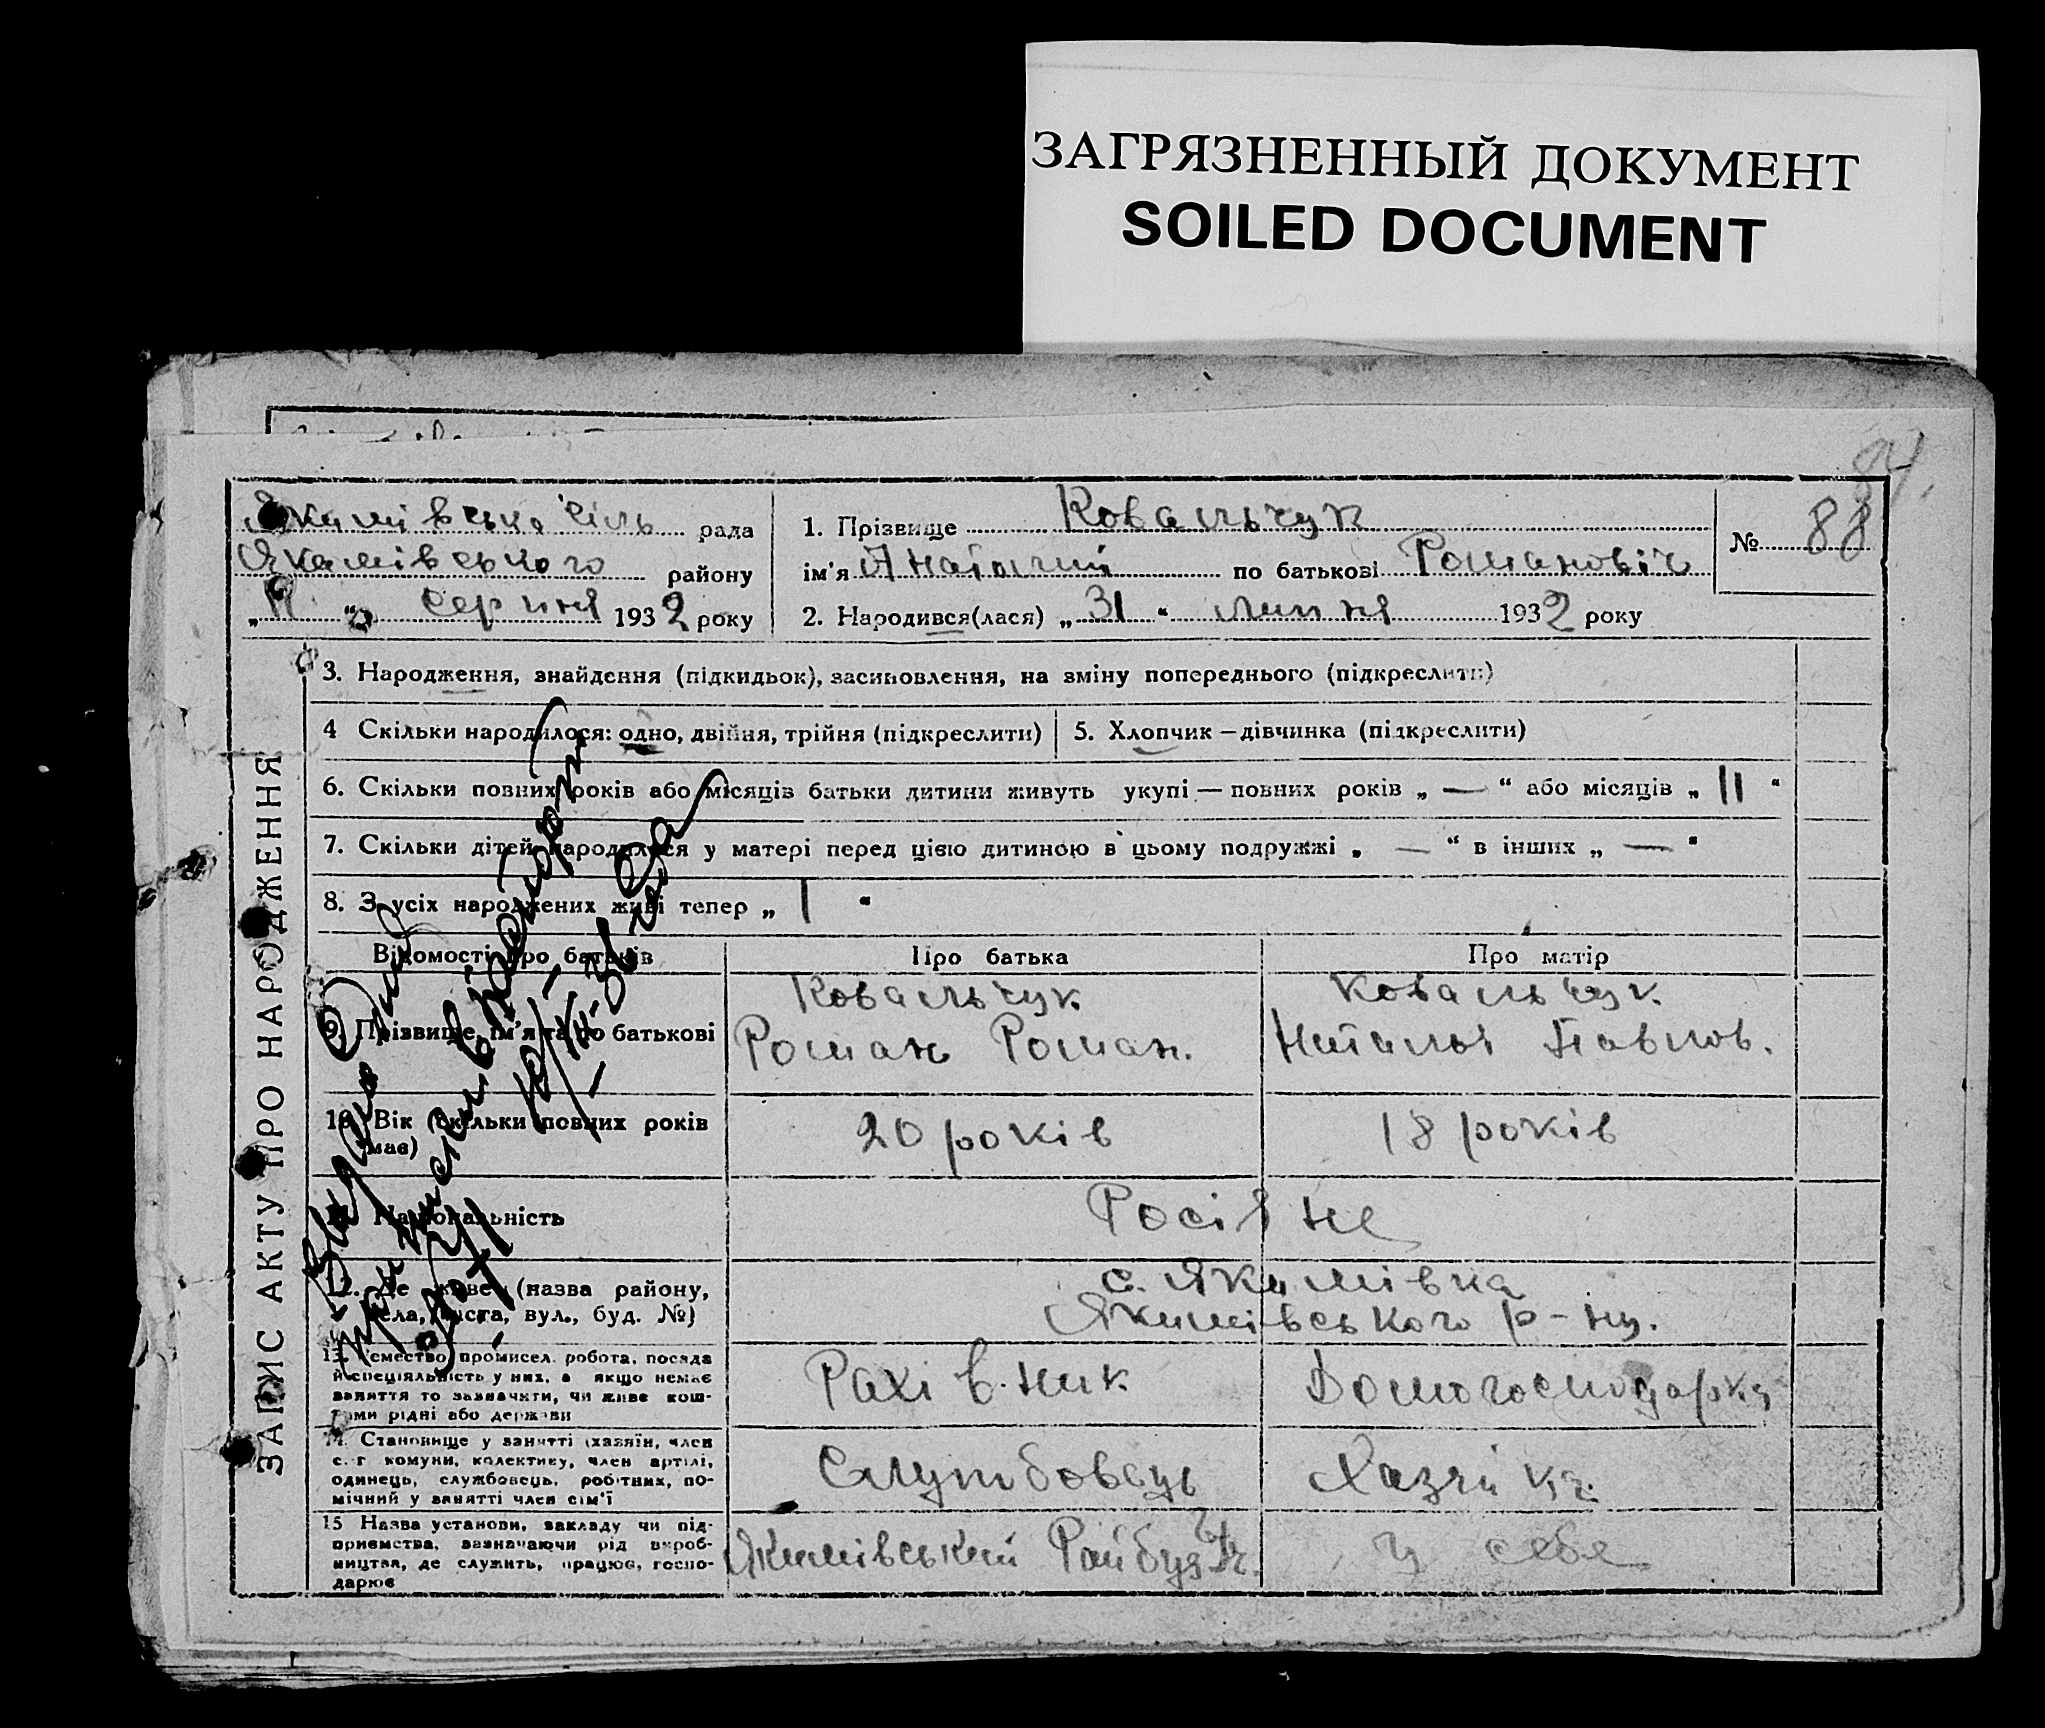 ЗАГРЯЗНЕННЫЙ ДОКУМЕНТ
SOILED DOCUMENT
84.
Якимівська сіль рада
Якимівського району
„11“ серпня 1932 року
1. Прізвище Ковальчук
ім'я Анатолий по батькові Романовіч
№ 88
2. Народився(лася) „31“ липня 1932 року
ЗАПИС АКТУ ПРО НАРОДЖЕННЯ
3. Народження, знайдення (підкидьок), засиновлення, на зміну попереднього (підкреслити)
4 Скільки народилося: одно, двійня, трійня (підкреслити)
5. Хлопчик – дівчинка (підкреслити)
6. Скільки повних років або місяців батьки дитини живуть укупі — повних років „ — “ або місяців „ 11 “
7. Скільки дітей народилося у матері перед цією дитиною в цьому подружжі „ — “ в інших „ — “
8. З усіх народжених живі тепер „ 1 “
Відомості про батьків
Про батька
Про матір
9. Прізвище, ім'я та по батькові
Ковальчук
Роман Роман.
Ковальчук.
Наталья Павлов.
10. Вік (скільки повних років має)
20 років
18 років
11. Національність
Росіяне
12. Де живе (назва району,
села, міста, вул., буд. №)
с. Якимівка
Якимівського р-ну.
13. Ремество, промисел, робота, посада
й спеціяльність у них, а якщо немає
заняття то зазначити, чи живе кош-
тами рідні або держави
Рахівник
Домогосподарка
14. Становище у занятті (хазяїн, член
с.-г комуни, колективу, член артілі,
одинець, службовець, робітник, по-
мічний у занятті член сім'ї
Службовець
Хазяйка.
15 Назва установи, закладу чи під-
приємства, зазначаючи рід вироб-
ництва, де служить, працює, госпо-
дарює
Якимівський
у себе